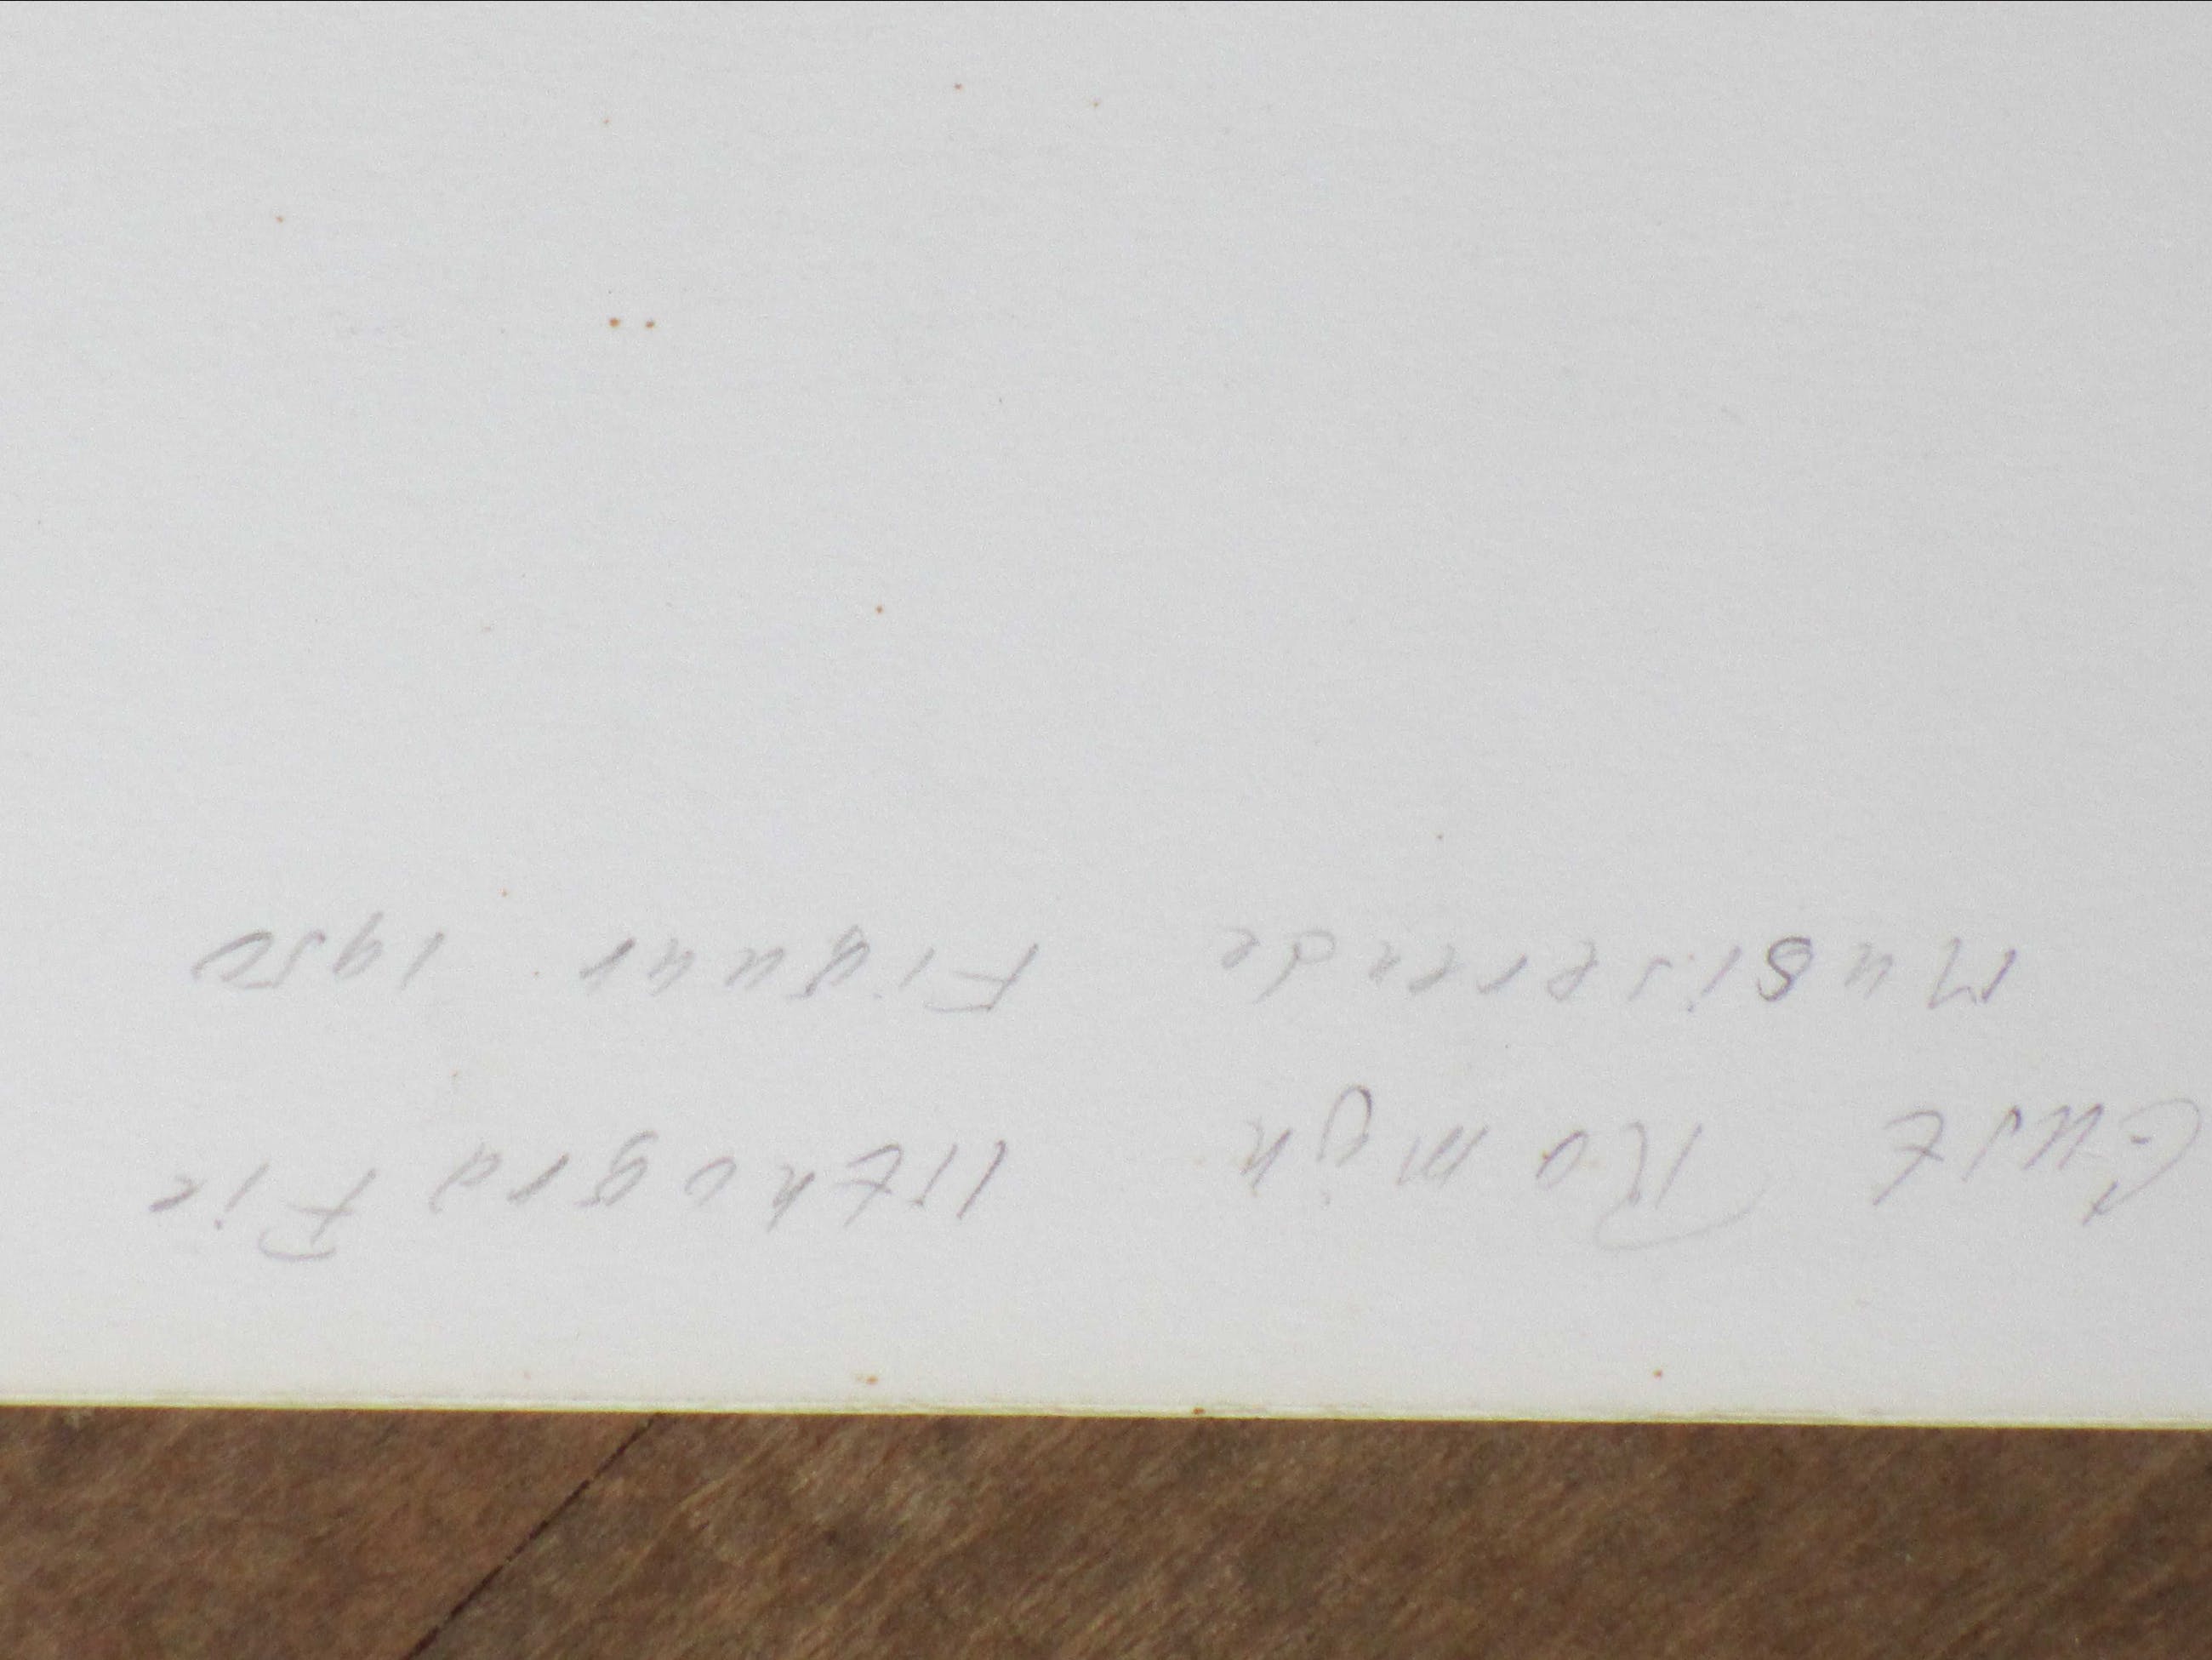 Gust Romijn lithograFie
Musiserende Figuur 1950